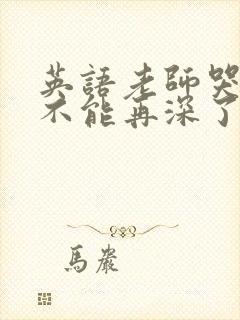 英語老師哭
不能再深了
馬嚴